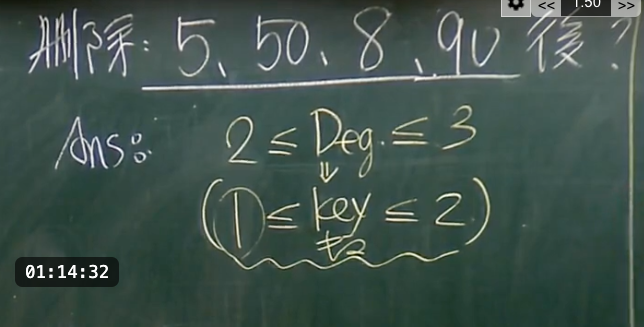 << 1.50 >>
刪除: 5、50、8、90 後?
Ans: 2 ≤ Deg. ≤ 3
⇓
(1 ≤ key ≤ 2)
01:14:32